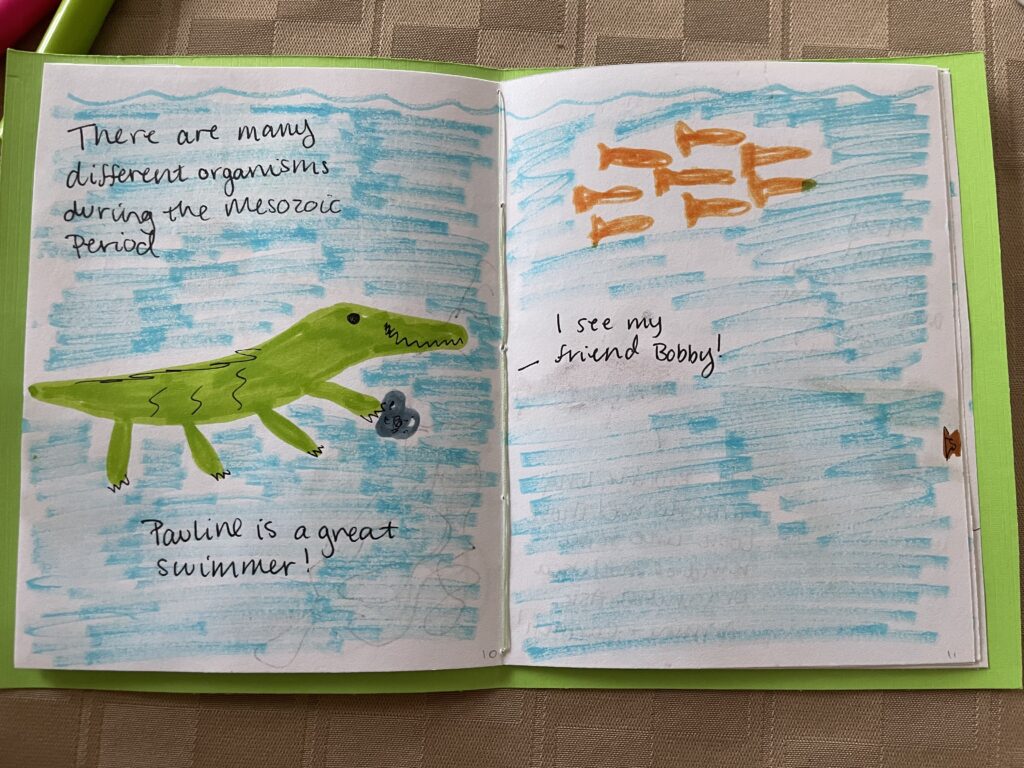 There are many
different organisms
during the Mesozoic
Period
Pauline is a great
swimmer!
10
I see my
friend Bobby!
11